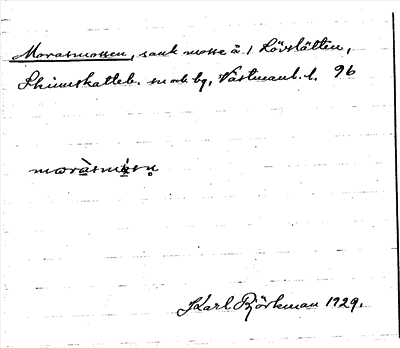 Morasmossen, sank mosse å 1 Lövslätten,
Skinnskatteb. sn och bg, Västmanl. l. 96
moràsmɷsn̥
Karl Björkman 1929.